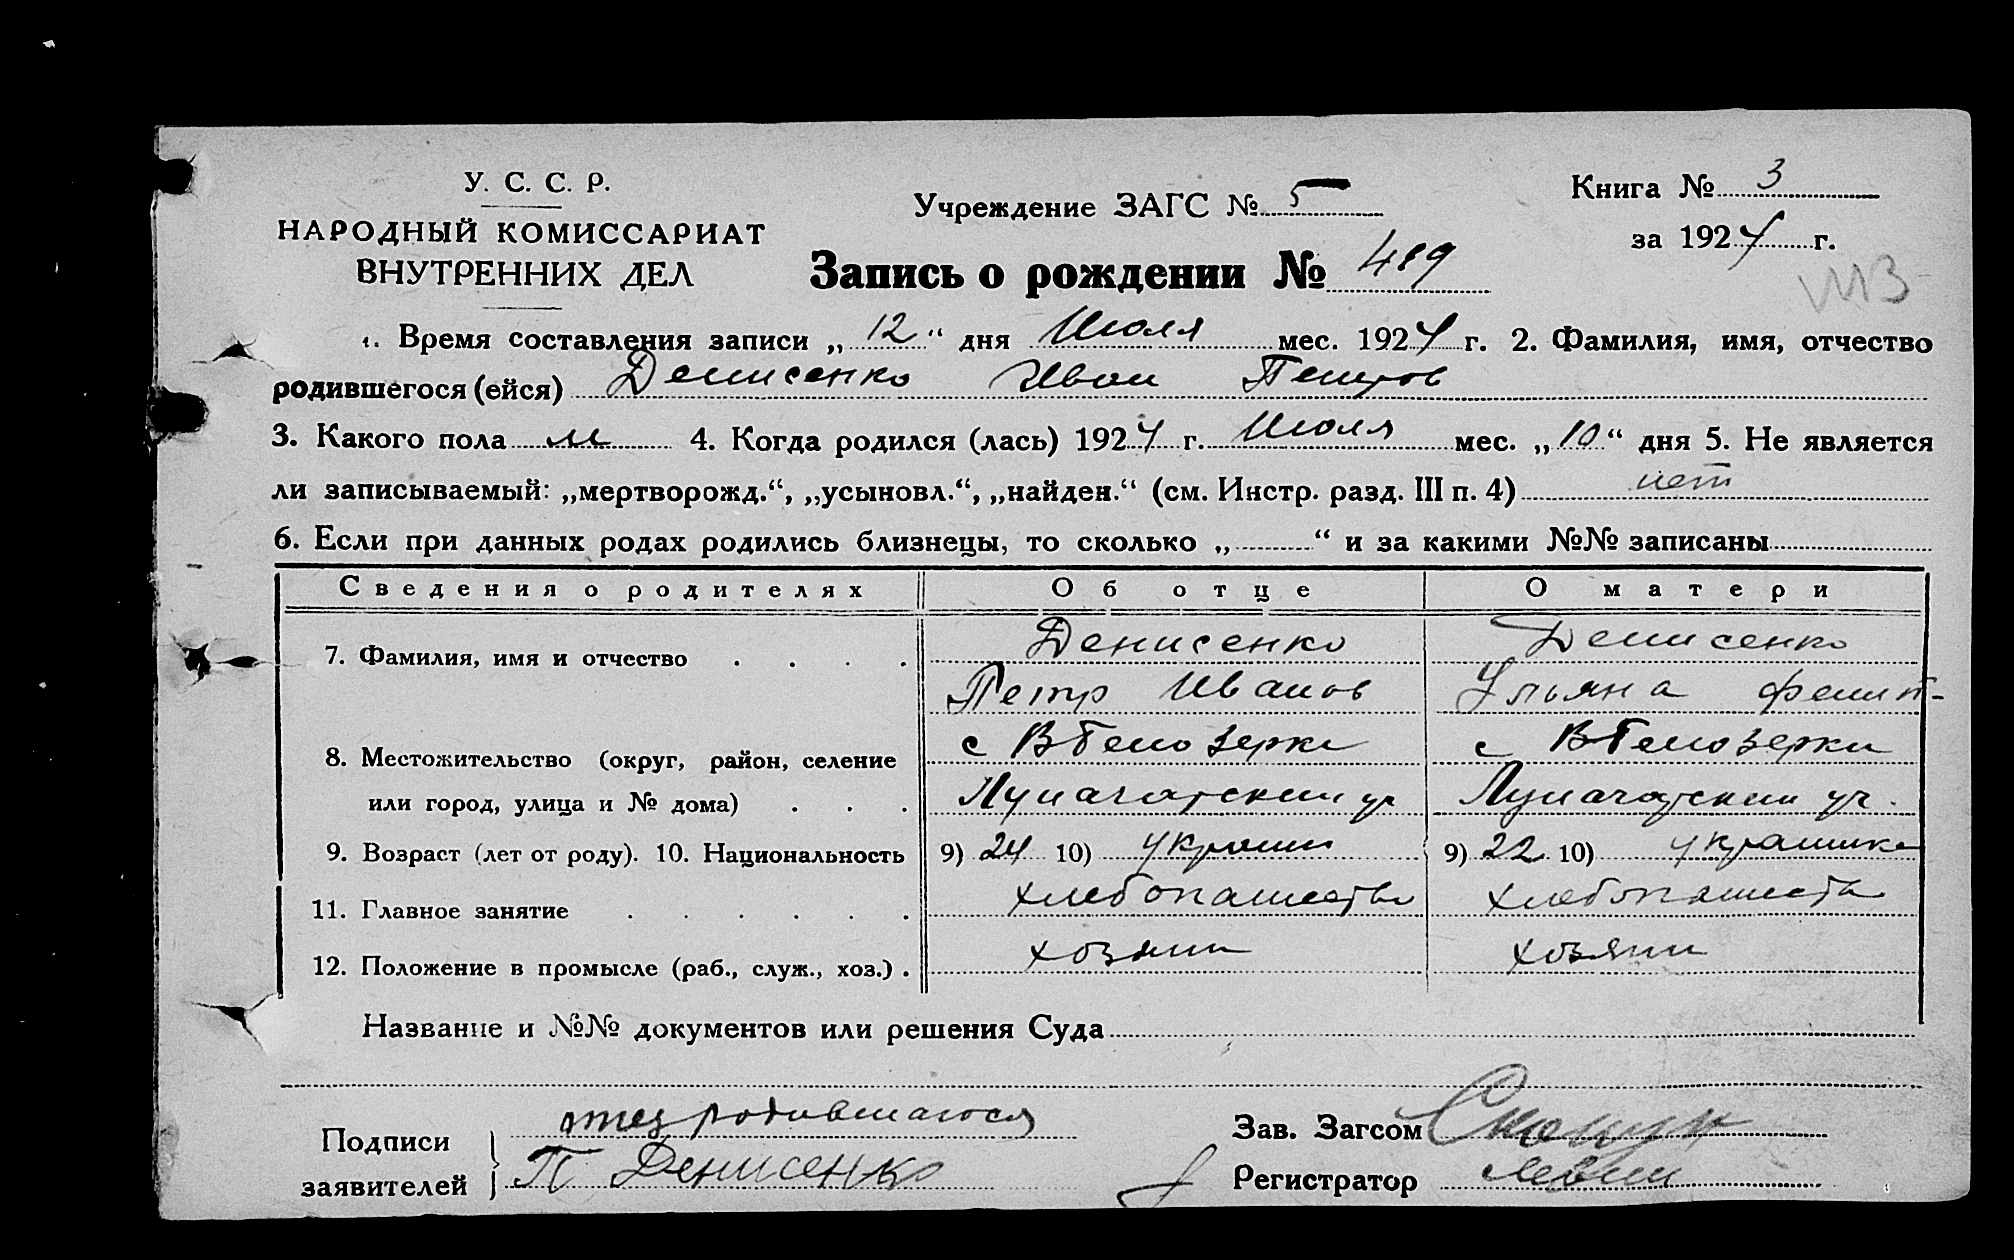 У. С. С. Р.
НАРОДНЫЙ КОМИССАРИАТ
ВНУТРЕННИХ ДЕЛ
Учреждение ЗАГС № 5
Книга № 3
за 1924 г.
Запись о рождении № 489
1. Время составления записи „12“ дня Июля мес. 1924 г. 2. Фамилия, имя, отчество
родившегося (ейся) Денисенко Иван Петров
3. Какого пола м 4. Когда родился (лась) 1924 г. Июля мес. „10“ дня 5. Не является
ли записываемый: „мертворожд.“, „усыновл.“, „найден.“ (см. Инстр. разд. III п. 4) нет
6. Если при данных родах родились близнецы, то сколько „ “ и за какими №№ записаны
Сведения о родителях Об отце О матери
7. Фамилия, имя и отчество Денисенко Денисенко
Петр Иванов Ульяна Филип-
8. Местожительство (округ, район, селение с В Белозерки с В Белозерки
или город, улица и № дома)
9. Возраст (лет от роду). 10. Национальность 9) 24 10) украин 9) 22 10) украинка
11. Главное занятие хлебопашество хлебопашество
12. Положение в промысле (раб., служ., хоз.) хозяин хозяин
Название и №№ документов или решения Суда
Подписи отец родившагося
заявителей П Денисенко
Зав. Загсом
Регистратор Левин